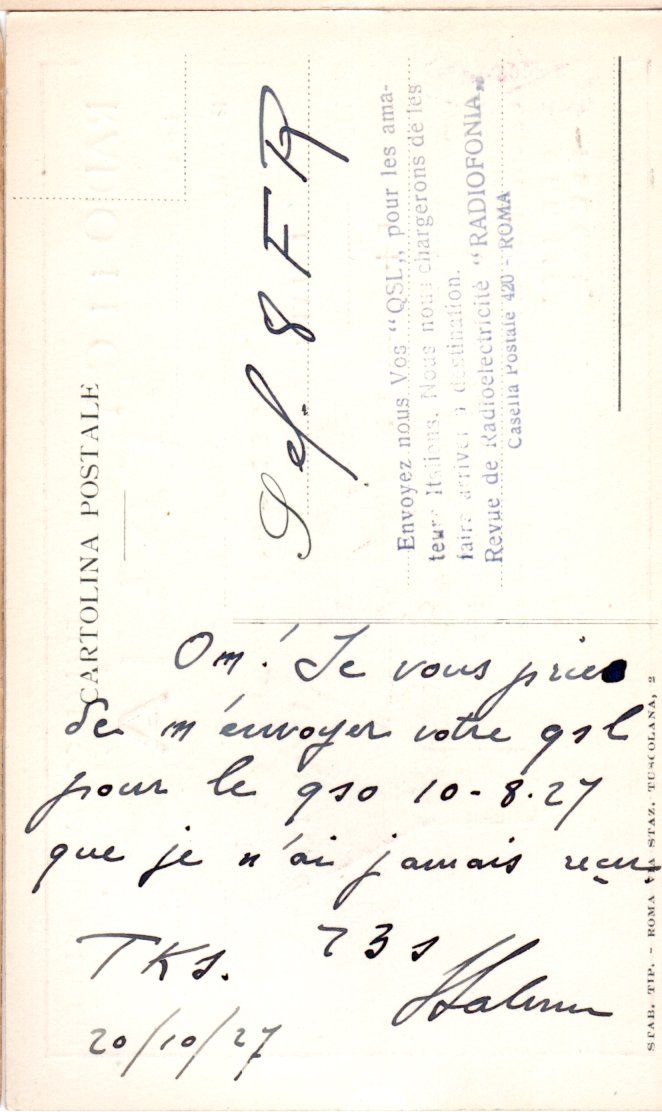 CARTOLINA POSTALE
8FR
Envoyez nous Vos “QSL„, pour les ama-
teurs Italiens. Nous nous chargerons de les
faire arriver à destination.
Revue de Radioelectricité “RADIOFONIA„
Casella Postale 420 - ROMA
Om! Je vous prie
de m'envoyer votre qsl
pour le qso 10-8-27
que je n'ai jamais reçu.
TKS. 73s
20/10/27
STAB. TIP. - ROMA VIA STAZ. TUSCOLANA, 2